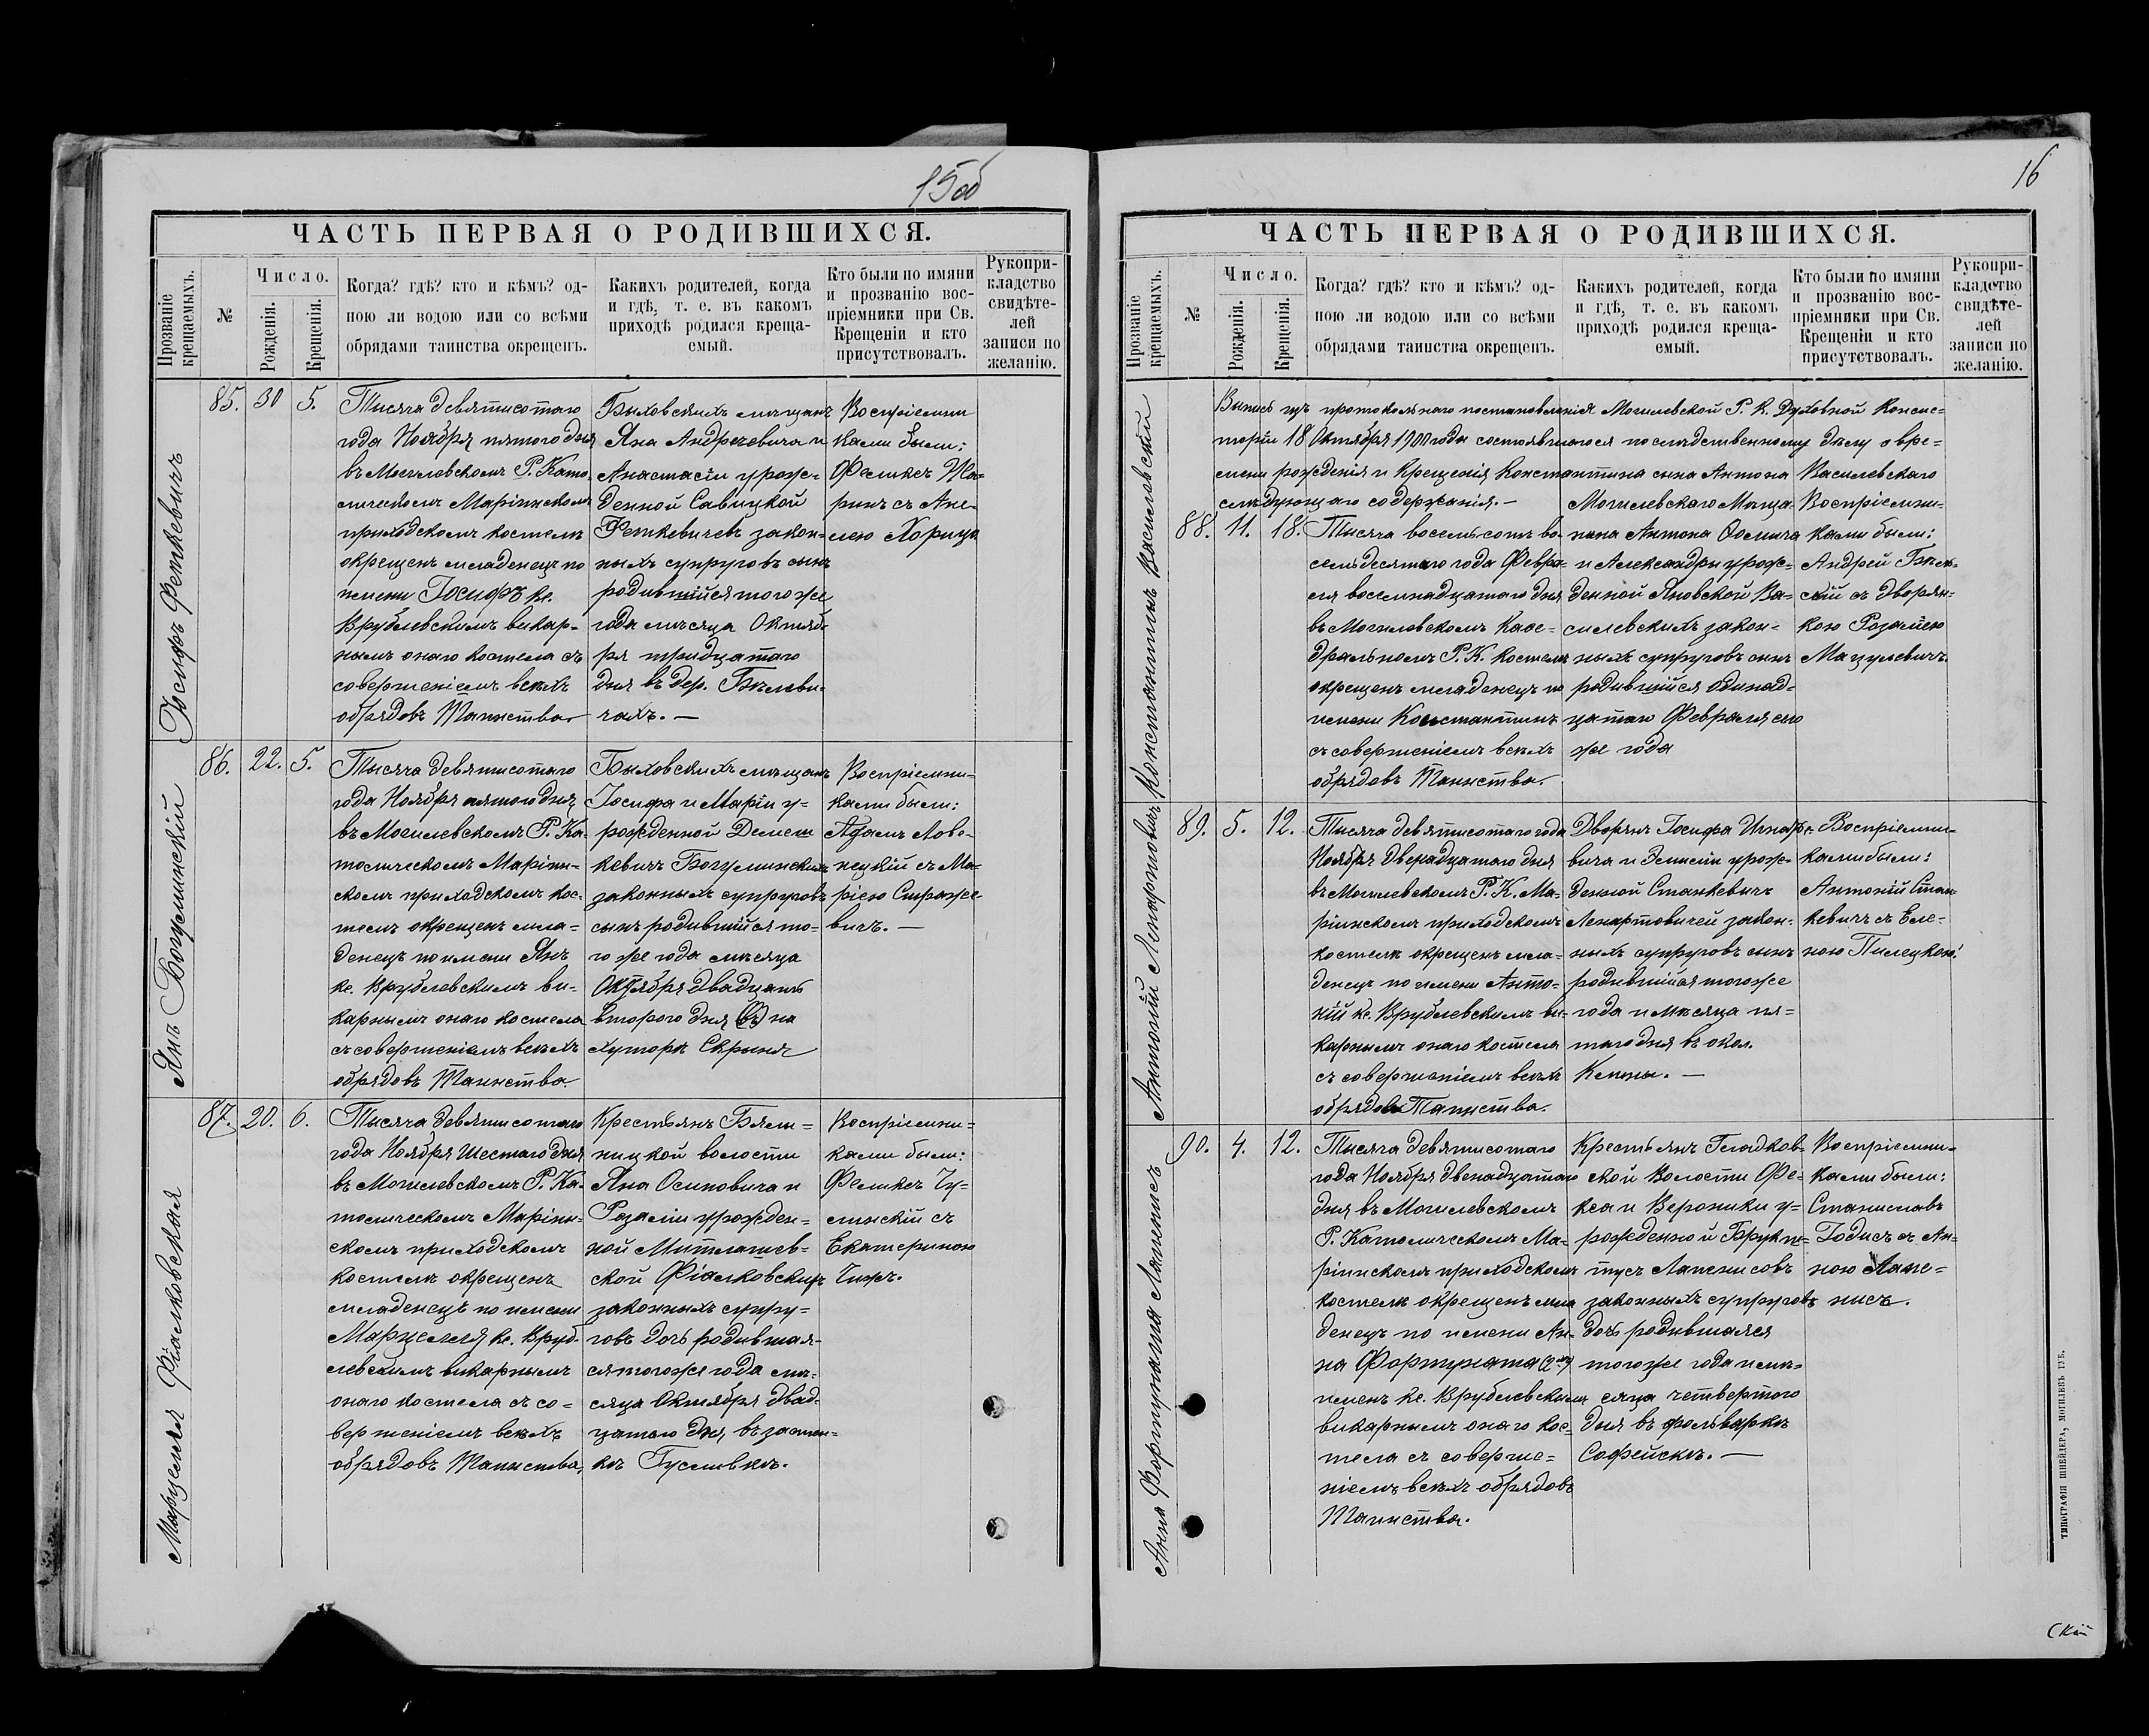 15об
ЧАСТЬ ПЕРВАЯ О РОДИВШИХСЯ.
Прозваніе крещаемыхъ.
№
Число.
Рожденія.
Крещенія.
Когда? гдѣ? кто и кѣмъ? од-
ною ли водою или со всѣми
обрядами таинства окрещенъ.
Какихъ родителей, когда
и гдѣ, т. е. въ какомъ
приходѣ родился креща-
емый.
Кто были по имяни
и прозванію вос-
пріемники при Св.
Крещеніи и кто
присутствовалъ.
Рукопри-
кладство
свидѣте-
лей
записи по
желанію.
Іосифъ Феткевичъ
85. 30 5.
Тысяча девятисотаго
года Ноября пятого дня
въ Могилевскомъ Р. Като-
лическомъ Маріинскомъ
приходскомъ костелѣ
окрещенъ младенецъ по
имени Іосифъ кс.
Врублевскимъ викар-
нымъ онаго костела съ
совершеніемъ всѣхъ
обрядовъ Таинства
Быховскихъ мѣщанъ
Яна Андреевича и
Анастасіи урож-
денной Савицкой
Феткевичевъ закон-
ныхъ супруговъ сынъ
родившійся того же
года мѣсяца Октяб-
ря тридцатаго
дня въ дер. Бѣлеви-
чахъ. —
Воспріемни
ками были:
Феликсъ
съ Ане-
лею
Янъ Богуминскій
86. 22. 5.
Тысяча девятисотаго
года Ноября пятого дня
въ Могилевскомъ Р. Ка-
толическомъ Маріин-
скомъ приходскомъ кос-
телѣ окрещенъ мла-
денецъ по имени Янъ
кс. Врублевскимъ ви-
карнымъ онаго костела
съ совершеніемъ всѣхъ
обрядовъ Таинства.
Быховскихъ мѣщанъ
Іосифа и Маріи у-
рожденной Демеш
кевичъ Богуминскихъ
законныхъ супруговъ
сынъ родившійся то-
го же года мѣсяца
Октября двадцать
второго дня (въ) на
хуторѣ Скрыня
Воспріемни-
ками были:
Адамъ Лово-
нецкій съ Ма-
ріею
вичъ. —
Марцелля Фіалковская
87. 20. 6.
Тысяча девятисотаго
года Ноября шестаго дня
въ Могилевскомъ Р. Ка-
толическомъ Маріин-
скомъ приходскомъ
костелѣ окрещенъ
младенецъ по имени
Марцелля кс. Вруб-
левскимъ викарнымъ
онаго костела съ со-
вершеніемъ всѣхъ
обрядовъ Таинства,
Крестьянъ Бялы-
ницкой волости
Яна Осиповича и
Розаліи урожден-
ной
ской Фіалковскихъ
законныхъ супру-
говъ дочь родившая-
ся того же года мѣ-
сяца Октября двад-
цатаго дня, въ застѣн-
кѣ Гусливкѣ.
Воспріемни-
ками были:
Феликсъ
съ
Екатериною
16
ЧАСТЬ ПЕРВАЯ О РОДИВШИХСЯ.
Прозваніе крещаемыхъ.
№
Число.
Рожденія.
Крещенія.
Когда? гдѣ? кто и кѣмъ? од-
ною ли водою или со всѣми
обрядами таинства окрещенъ.
Какихъ родителей, когда
и гдѣ, т. е. въ какомъ
приходѣ родился креща-
емый.
Кто были по имяни
и прозванію вос-
пріемники при Св.
Крещеніи и кто
присутствовалъ.
Рукопри-
кладство
свидѣте-
лей
записи по
желанію.
Выпись изъ протокольнаго постановленія Могилевской Р. К. Духовной Консис-
торіи 18 Октября 1900 года состоявшагося по слѣдственному дѣлу о вре-
мени рожденія и крещенія Константина сына Антона Василевскаго
слѣдующаго содержанія. —
Константинъ Василевскій
88. 11. 18.
Тысяча восемьсотъ во-
семьдесятаго года Февра-
ля восемнадцатаго дня
въ Могилевскомъ Каѳе-
дральномъ Р. К. костелѣ
окрещенъ младенецъ по
имени Константинъ
съ совершеніемъ всѣхъ
обрядовъ Таинства.
Могилевскаго Мѣща-
нина Антона Осипова
и Александры урож-
денной Яновской Ва-
силевскихъ закон-
ныхъ супруговъ сынъ
родившійся одинад-
цатаго Февраля сего
же года
Воспріемни-
ками были:
Андрей
скій съ дворян-
кою Розаліею
Мацулевичъ.
Антоній Ленартовичъ
89. 5. 12.
Тысяча девятисотаго года
Ноября двенадцатаго дня
въ Могилевскомъ Р. К. Ма-
ріинскомъ приходскомъ
костелѣ окрещенъ мла-
денецъ по имени Анто-
ній кс. Врублевскимъ ви-
карнымъ онаго костела
съ совершеніемъ всѣхъ
обрядовъ Таинства.
Дворянъ Іосифа Игнатье-
вича и Эмиліи урож-
денной Станкевичъ
Ленартовичей закон-
ныхъ супруговъ сынъ
родившійся того же
года и мѣсяца пя-
таго дня въ окол.
Воспріемни-
ками были:
Антоній Стан
кевичъ съ Еле-
ною Пилецкой
Анна Фортуната Лапенисъ
90. 4. 12.
Тысяча девятисотаго
года Ноября двенадцатаго
дня въ Могилевскомъ
Р. Католическомъ Ма-
ріинскомъ приходскомъ
костелѣ окрещенъ мла
денецъ по имени Ан-
на Фортуната (2-хъ)
именъ кс. Врублевскимъ
викарнымъ онаго кос-
тела съ соверше-
ніемъ всѣхъ обрядовъ
Таинства.
Крестьянъ Гладков-
ской Волости Фе-
кса и Вероники у-
рожденной
Лапенисовъ
законныхъ супруговъ
дочь родившаяся
того же года и мѣ-
сяца четвертого
дня въ фольваркѣ
Софейскѣ. —
Воспріемни-
ками были:
Станиславъ
Годисъ съ Ан-
ною Лапе-
нисъ.
ТИПОГРАФІЯ ШНЕЙДЕРА, МОГИЛЕВЪ ГУБ.
скій